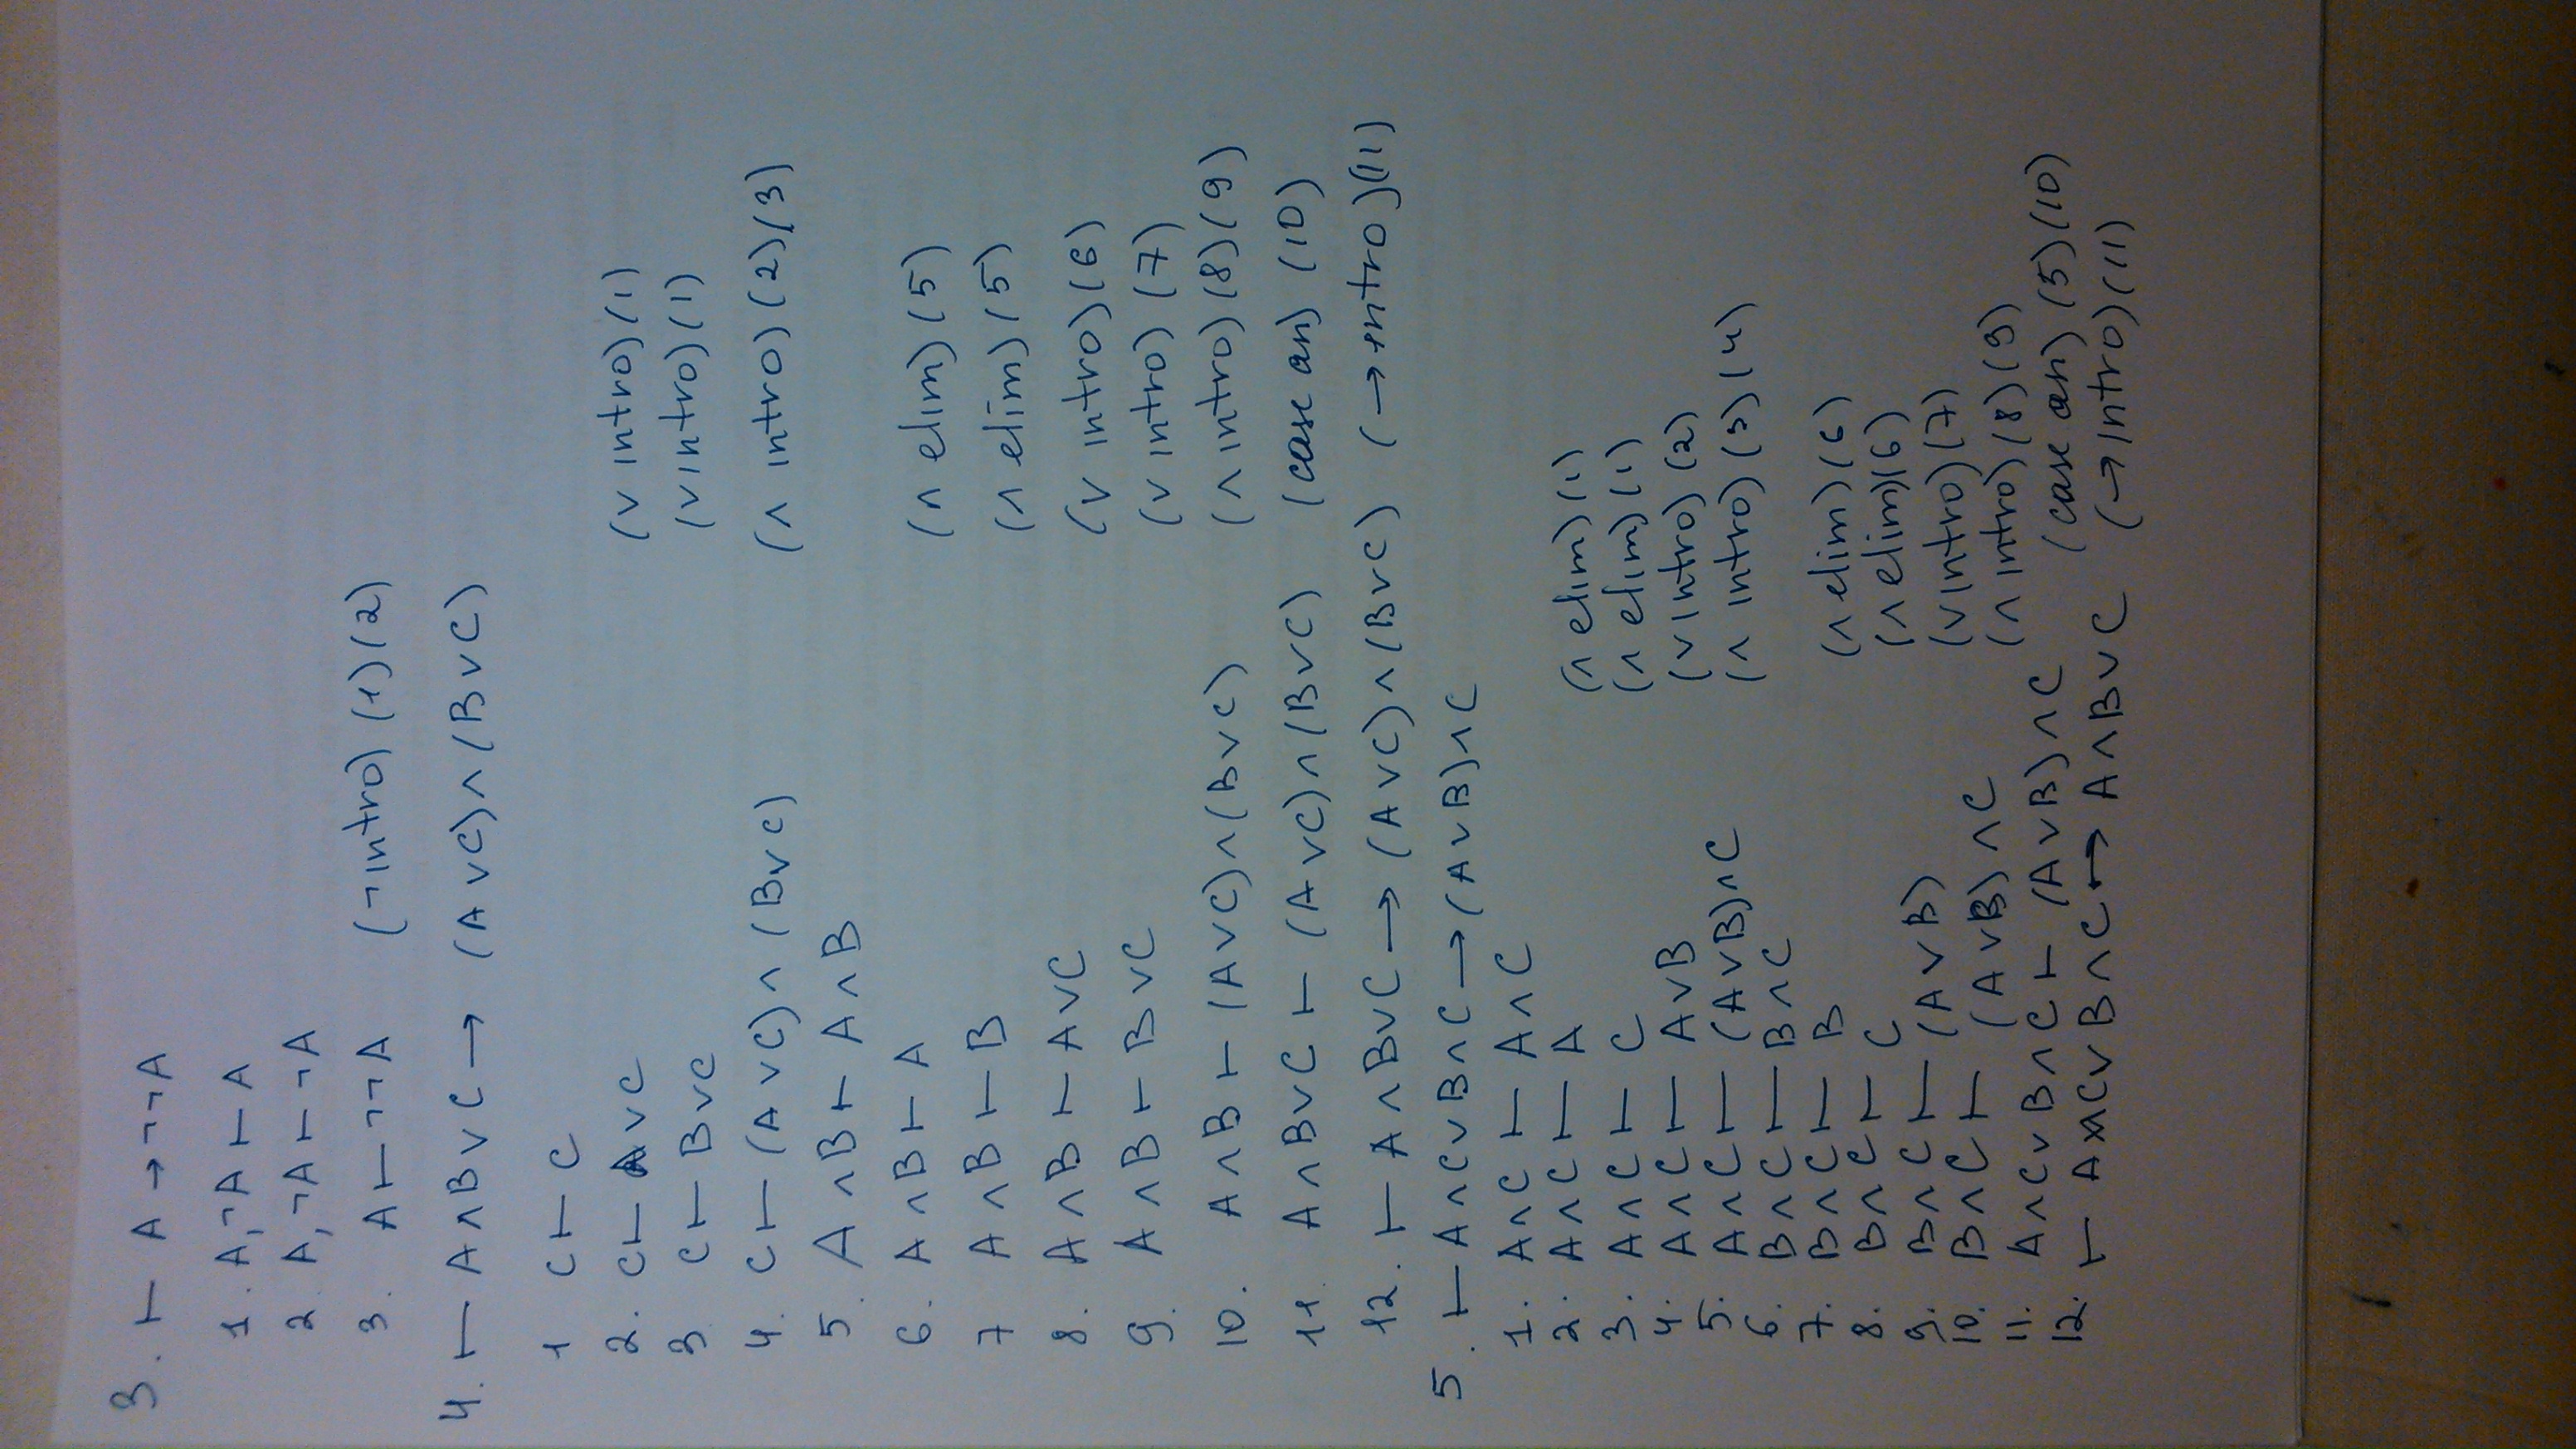 3. ⊢ A → ¬¬A
1. A, ¬A ⊢ A
2 A, ¬A ⊢ ¬A
3. A ⊢ ¬¬A (¬intro) (1) (2)
4. ⊢ A∧B∨C → (A∨C)∧(B∨C)
1 C ⊢ C
2. C ⊢ A∨C (∨ intro) (1)
3 C ⊢ B∨C (∨intro) (1)
4. C ⊢ (A∨C)∧(B∨C) (∧ intro) (2) (3)
5. A∧B ⊢ A∧B
6. A∧B ⊢ A (∧ elim) (5)
7 A∧B ⊢ B (∧ elim) (5)
8. A∧B ⊢ A∨C (∨ intro) (6)
9. A∧B ⊢ B∨C (∨ intro) (7)
10. A∧B ⊢ (A∨C)∧(B∨C) (∧ intro) (8) (9)
11. A∧B∨C ⊢ (A∨C)∧(B∨C) (case an) (10)
12. ⊢ A∧B∨C → (A∨C)∧(B∨C) (→intro) (11)
5. ⊢ A∧C∨B∧C → (A∨B)∧C
1. A∧C ⊢ A∧C
2. A∧C ⊢ A (∧ elim) (1)
3. A∧C ⊢ C (∧ elim) (1)
4. A∧C ⊢ A∨B (∨intro) (2)
5. A∧C ⊢ (A∨B)∧C (∧ intro) (3) (4)
6. B∧C ⊢ B∧C
7. B∧C ⊢ B (∧ elim) (6)
8. B∧C ⊢ C (∧ elim) (6)
9. B∧C ⊢ (A∨B) (∨intro) (7)
10. B∧C ⊢ (A∨B)∧C (∧ intro) (8) (9)
11. A∧C∨B∧C ⊢ (A∨B)∧C (case an) (5) (10)
12. ⊢ A∧C∨B∧C → A∧B∨C (→intro) (11)